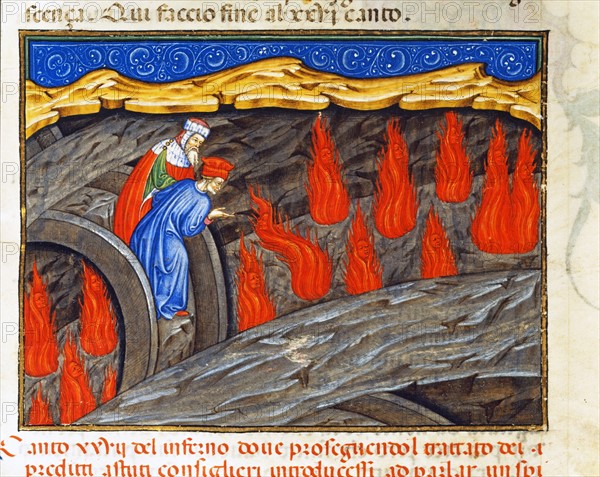 Qui faccio fine al xxvj canto.
Canto xxvij del inferno doue proseguendol trattato dei
preditti astuti consiglieri introducessi ad parlar un spi
PHOTO 12